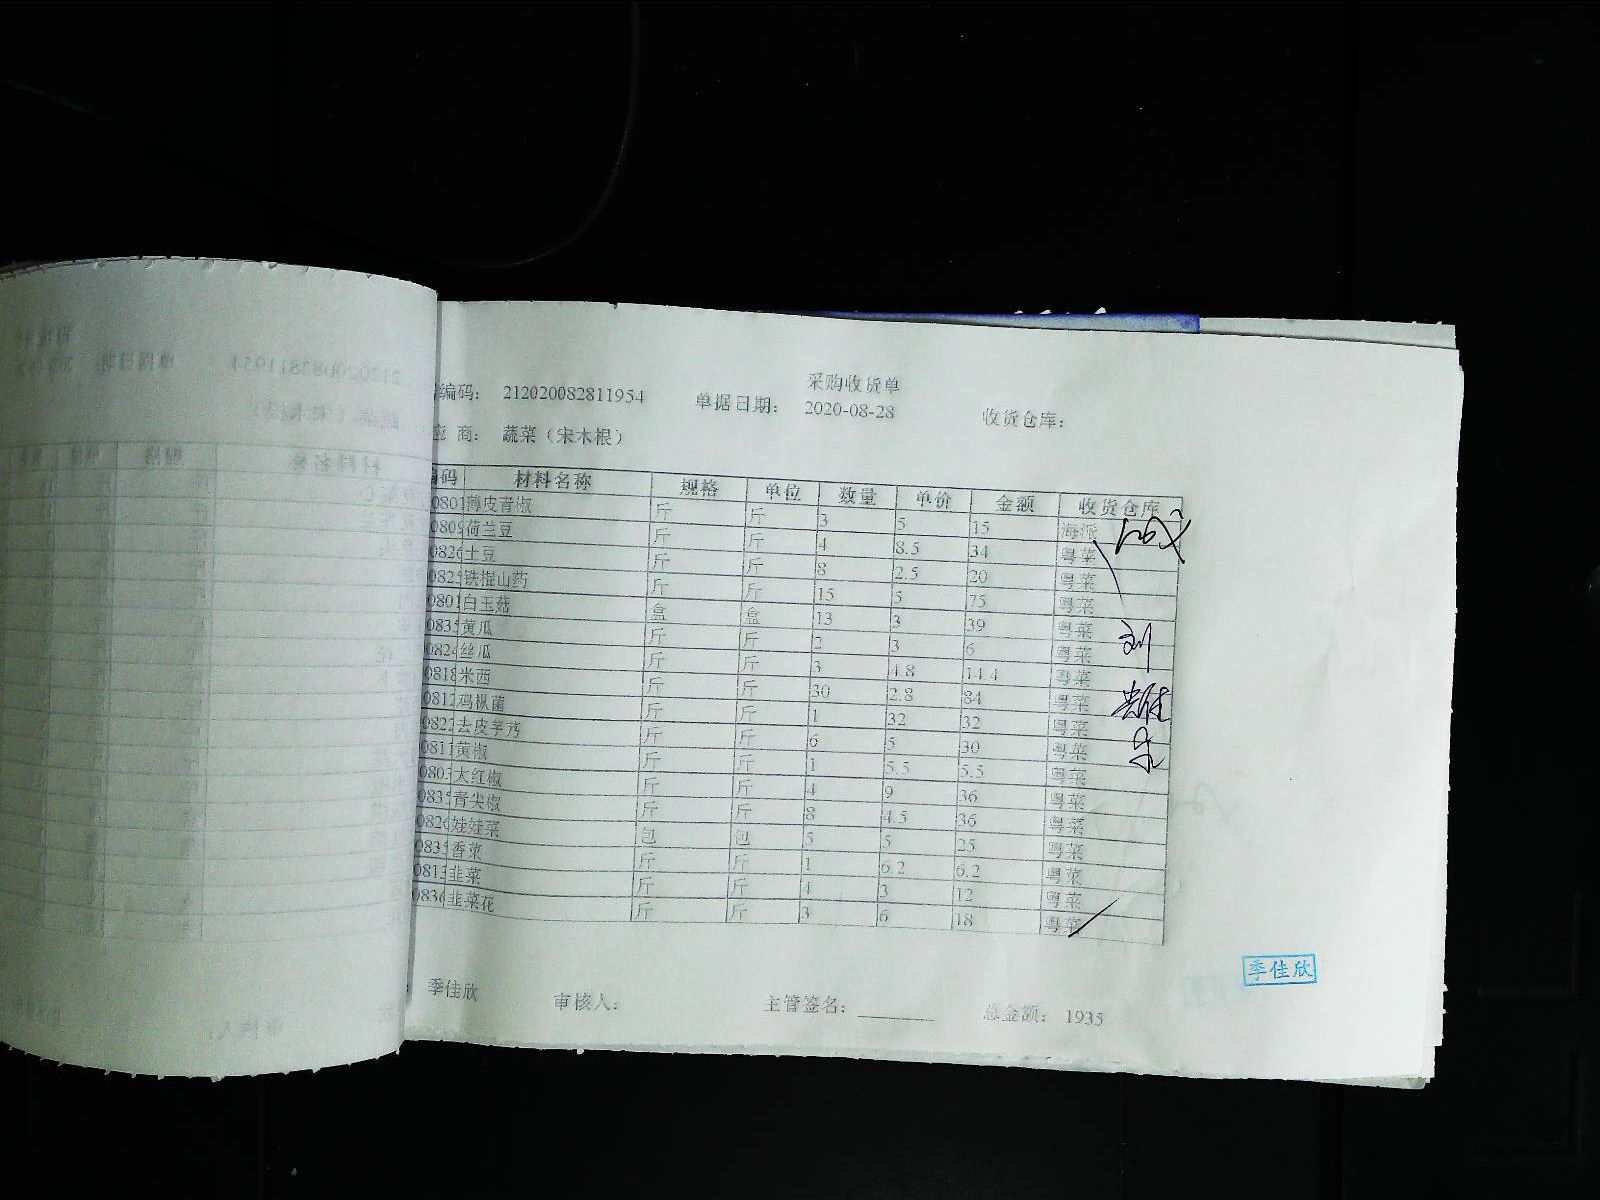 采购收货单
编码： 212020082811954 单据日期： 2020-08-28 收货仓库：
商： 蔬菜（宋木根）
编码 材料名称 规格 单位 数量 单价 金额 收货仓库
0801 薄皮青椒 斤 斤 3 5 15 海派
0809 荷兰豆 斤 斤 4 8.5 34 粤菜
0826 土豆 斤 斤 8 2.5 20 粤菜
0825 铁棍山药 斤 斤 15 5 75 粤菜
0801 白玉菇 盒 盒 13 3 39 粤菜
0835 黄瓜 斤 斤 2 3 6 粤菜
0824 丝瓜 斤 斤 3 4.8 14.4 粤菜
0818 米西 斤 斤 30 2.8 84 粤菜
0812 鸡枞菌 斤 斤 1 32 32 粤菜
0822 去皮芋艿 斤 斤 6 5 30 粤菜
0811 黄椒 斤 斤 1 5.5 5.5 粤菜
0803 大红椒 斤 斤 4 9 36 粤菜
0835 青尖椒 斤 斤 8 4.5 36 粤菜
0826 娃娃菜 包 包 5 5 25 粤菜
0835 香菜 斤 斤 1 6.2 6.2 粤菜
0813 韭菜 斤 斤 4 3 12 粤菜
0836 韭菜花 斤 斤 3 6 18 粤菜
季佳欣
季佳欣 审核人： 主管签名： 总金额： 1935